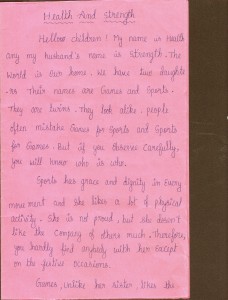 Health And strength
Hellow children! My name is Health
any my husband's name is strength. The
World is our home. We have two daughte
rs Their names are Games and Sports.
They are twins. They look alike. people
often mistake Games for Sports and Sports
for Games. But if you observe Carefully,
you will know who is who.
Sports has grace and dignity in Every
move ment and She likes a lot of physical
activity. She is not proud, but she doesn't
like the Company of others much. Therefore,
you hardly find anybody with her Except
on the festive occasions.
Games, unlike her sister, likes the